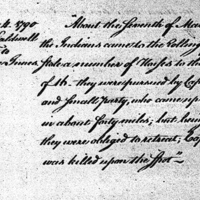 4. 1790
Caldwell
To
About the Seventh of Ma
the Indians came to the
Stole a number of Horses to the
of 16. they were pursued by
and Small party, who came up
in about forty miles, but
they were obliged to retreat;
was killed upon the Spot